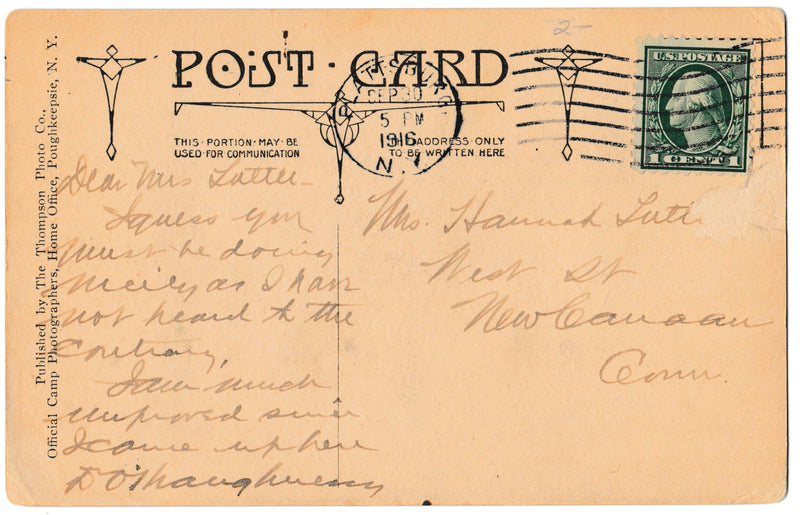 Published by The Thompson Photo Co.,
Official Camp Photographers, Home Office, Poughkeepsie, N. Y.
POST · CARD
THIS · PORTION · MAY · BE
USED · FOR · COMMUNICATION
ADDRESS · ONLY
TO · BE · WRITTEN HERE
PLATTSBURG
SEP 30
5 PM
1916
N.Y.
2-
U.S. POSTAGE
1 CENT 1
Dear Mrs
I guess you
must be doing
nicely as I have
not heard to the
contrary,
I am much
improved since
I came up here
D O'Shaughnessy
Mrs. Hannah
West St
New Canaan
Conn.